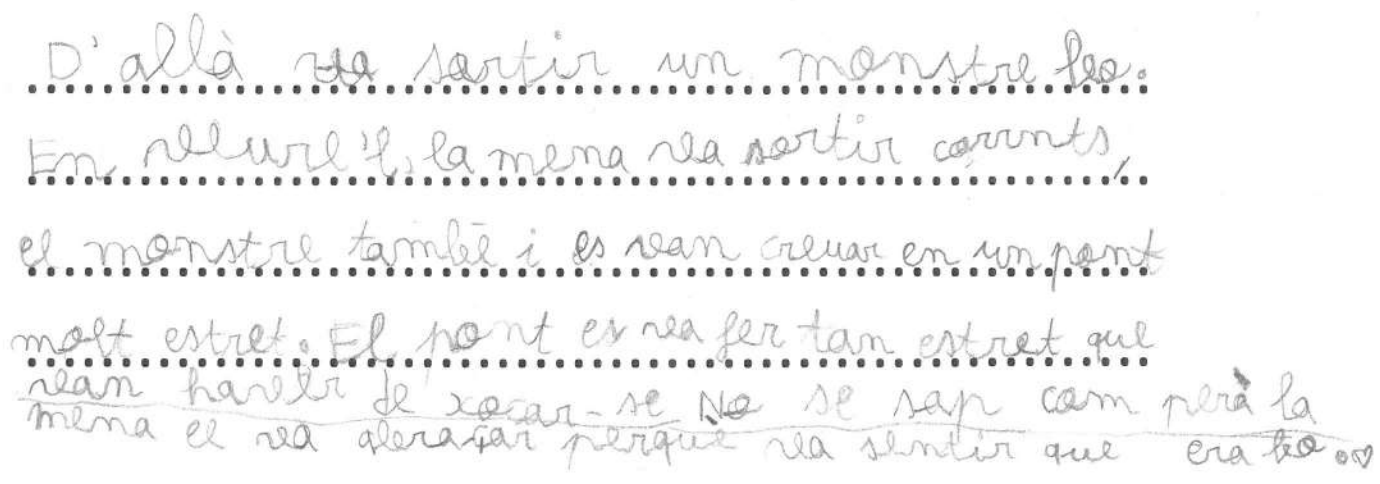 D'allà va sortir un monstre feo.
En veure'l, la mena va sortir corrents,
el monstre també i es van creuar en un pont
molt estret. El pont es va fer tan estret que
van haver de xocar-se No se sap com però la
mena el va abraçar perquè va sentir que era bo.♡